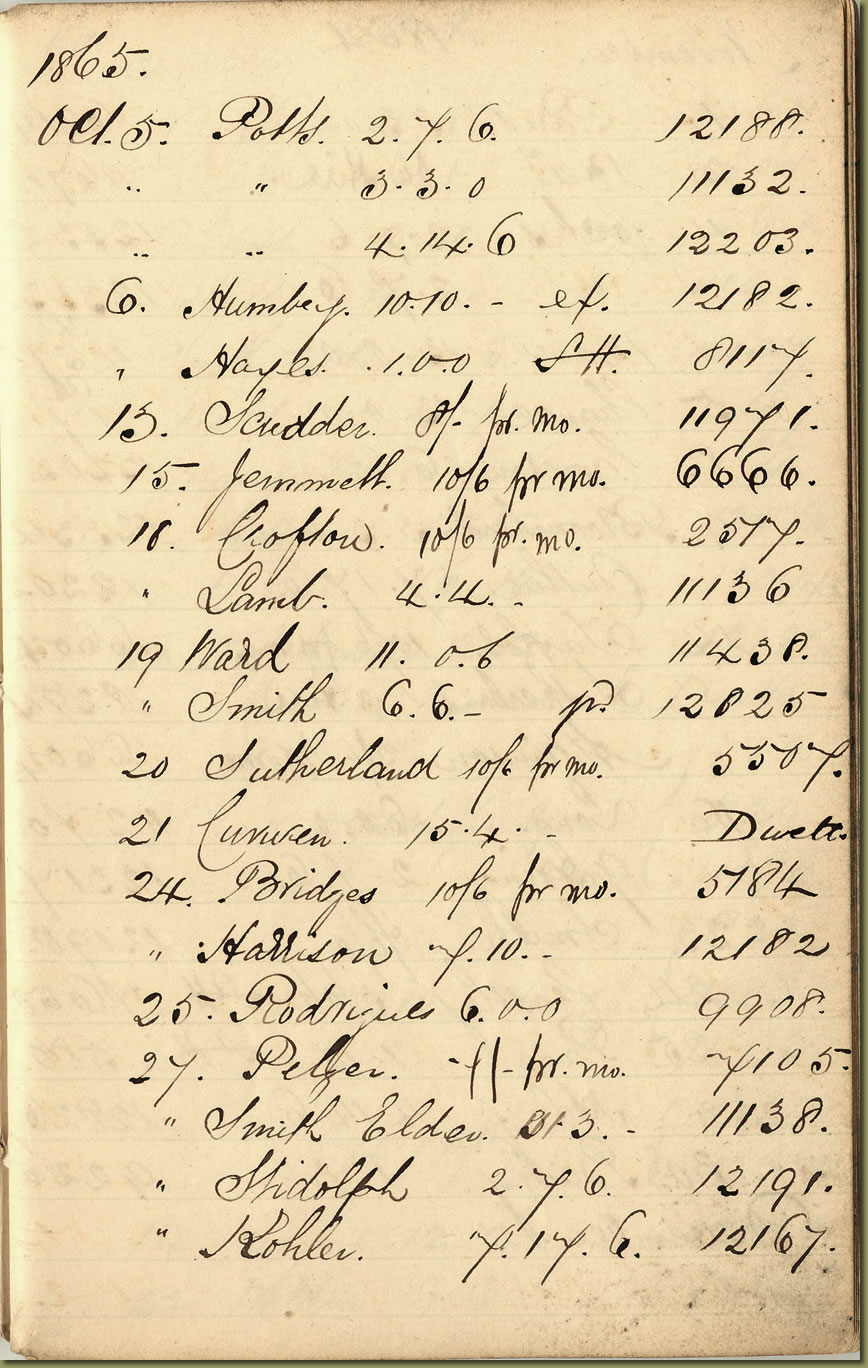 1865.
Oct. 5. Potts. 2. 7. 6. 12188.
" " 3. 3. 0 11132.
" " 4. 14. 6 12203.
6. Humbey. 10.10. - ex. 12182.
" Hayes. 1.0.0 SH. 8117.
13. Scudder. 8/- pr. mo. 11971.
15. Jemmett. 10/6 pr mo. 6666.
18. Crofton. 10/6 pr. mo. 2517.
" Lamb. 4.4. - 11136
19 Ward 11. 0.6 11438.
" Smith 6.6. - pd 12825
20 Sutherland 10/6 pr mo. 5507.
21 Curwen. 15.4. - Duett.
24. Bridges 10/6 pr mo. 5184
" Harrison 7.10. - 12182
25. Rodrigues 6.0.0 9908.
27. Pelzer. 7/- pr. mo. 7105.
" Smith Elder. 3. - 11138.
" Stidolph 2.7.6. 12191.
" Kohler. 7.17.6. 12167.